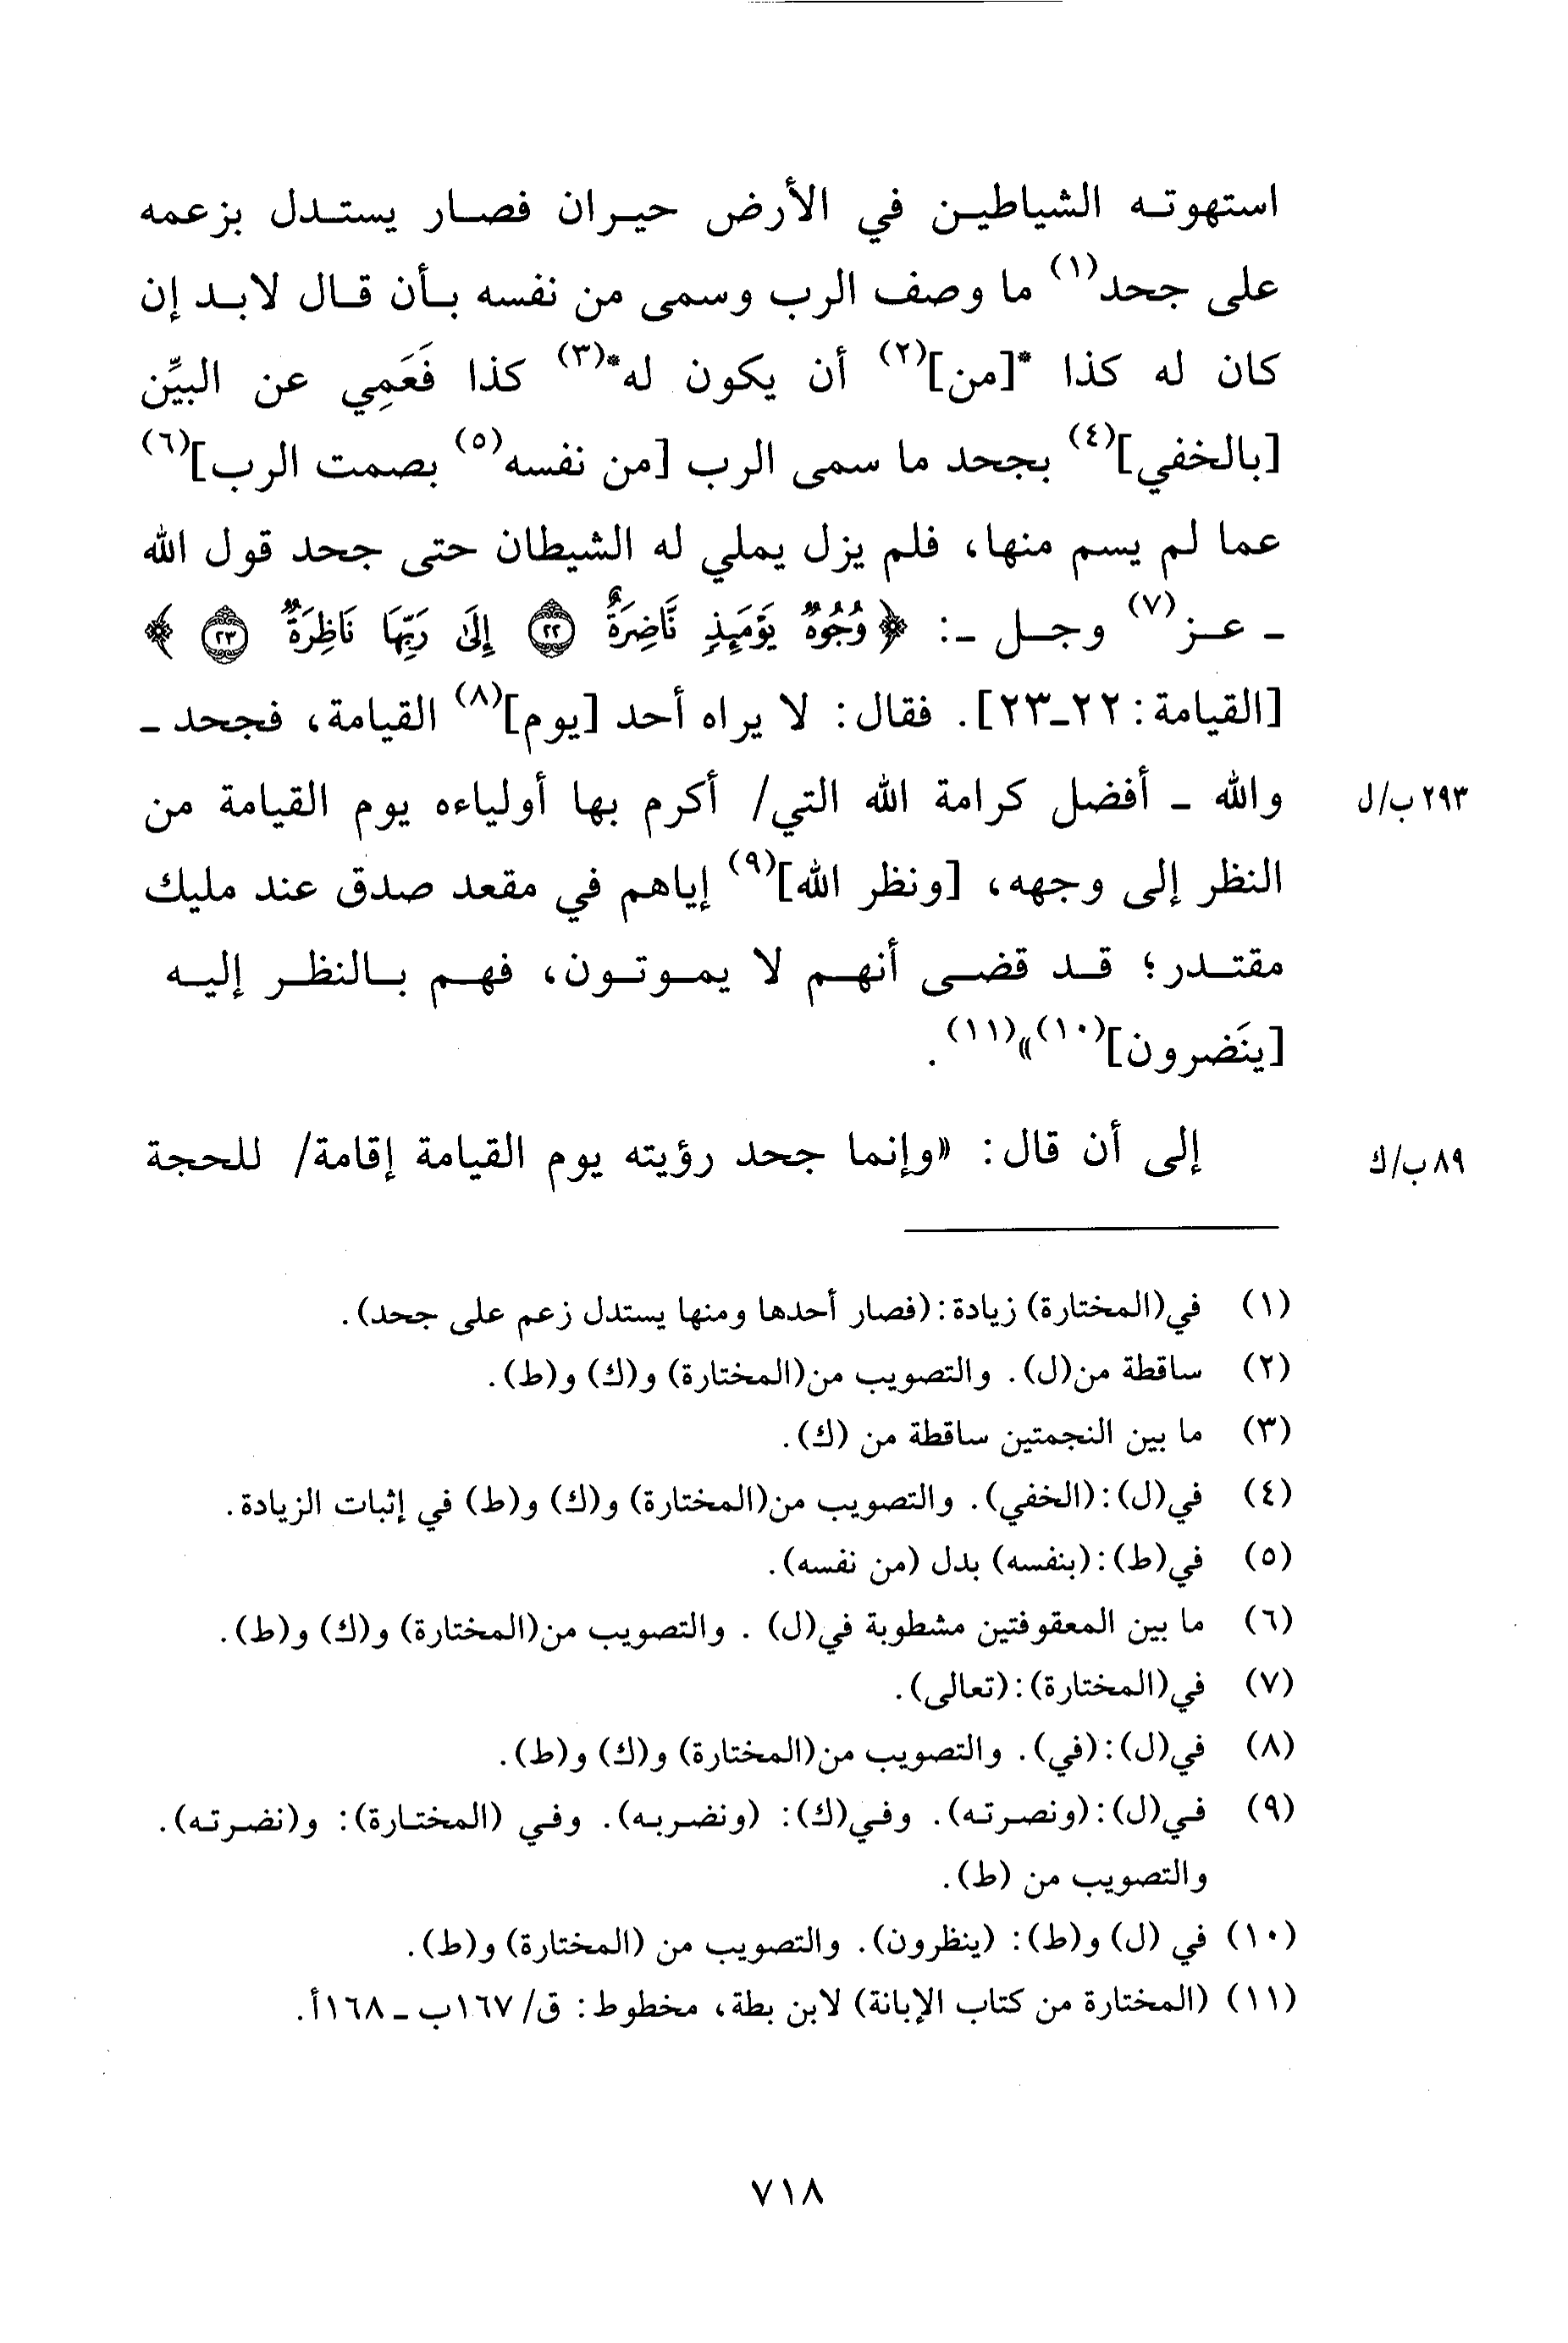 استهوته الشياطين في الأرض حيران فصار يستدل بزعمه
على جحد(١) ما وصف الرب وسمى من نفسه بأن قال لابد إن
كان له كذا *[من](٢) أن يكون له*(٣) كذا فَعَمِي عن البيِّن
[بالخفي](٤) بجحد ما سمى الرب [من نفسه(٥) بصمت الرب](٦)
عما لم يسم منها، فلم يزل يملي له الشيطان حتى جحد قول الله
ـ عز(٧) وجل ـ: ﴿وُجُوهٌ يَوْمَئِذٍ نَّاضِرَةٌ ۝٢٢ إِلَىٰ رَبِّهَا نَاظِرَةٌ ۝٢٣﴾
[القيامة: ٢٢ـ٢٣]. فقال: لا يراه أحد [يوم](٨) القيامة، فجحد ـ
والله ـ أفضل كرامة الله التي/ أكرم بها أولياءه يوم القيامة من
٢٩٣ب/ل
النظر إلى وجهه، [ونظر الله](٩) إياهم في مقعد صدق عند مليك
مقتدر؛ قد قضى أنهم لا يموتون، فهم بالنظر إليه
[ينَضرون](١٠)»(١١).
إلى أن قال: «وإنما جحد رؤيته يوم القيامة إقامة/ للحجة
٨٩ب/ك
(١) في(المختارة) زيادة: (فصار أحدها ومنها يستدل زعم على جحد).
(٢) ساقطة من(ل). والتصويب من(المختارة) و(ك) و(ط).
(٣) ما بين النجمتين ساقطة من (ك).
(٤) في(ل): (الخفي). والتصويب من(المختارة) و(ك) و(ط) في إثبات الزيادة.
(٥) في(ط): (بنفسه) بدل (من نفسه).
(٦) ما بين المعقوفتين مشطوبة في(ل) . والتصويب من(المختارة) و(ك) و(ط).
(٧) في(المختارة): (تعالى).
(٨) في(ل): (في). والتصويب من(المختارة) و(ك) و(ط).
(٩) في(ل): (ونصرته). وفي(ك): (ونضربه). وفي (المختارة): و(نضرته).
والتصويب من (ط).
(١٠) في (ل) و(ط): (ينظرون). والتصويب من (المختارة) و(ط).
(١١) (المختارة من كتاب الإبانة) لابن بطة، مخطوط: ق/ ١٦٧ب ـ ١٦٨أ.
٧١٨